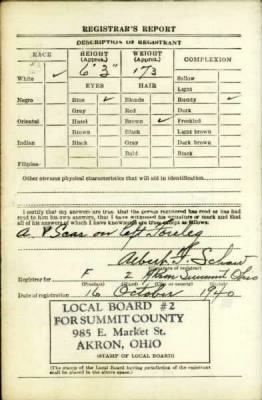 REGISTRAR'S REPORT
DESCRIPTION OF REGISTRANT
RACE HEIGHT (Approx.) WEIGHT (Approx.) COMPLEXION
White ✓ 6' 3" 173 Sallow
Light
EYES HAIR
Negro Blue ✓ Blonde Ruddy ✓
Gray Red Dark
Oriental Hazel Brown ✓ Freckled
Brown Black Light brown
Indian Black Gray Dark brown
Bald Black
Filipino
Other obvious physical characteristics that will aid in identification
I certify that my answers are true; that the person registered has read or has had
read to him his own answers; that I have witnessed his signature or mark and that
all of his answers of which I have knowledge are true, except as follows:
A Scar on left
Albert
(Signature of registrar)
Registrar for F 2 Akron Summit Ohio
(Precinct) (Ward)
Date of registration 16 October 1940
LOCAL BOARD #2
FOR SUMMIT COUNTY
985 E. Market St.
AKRON, OHIO
(STAMP OF LOCAL BOARD)
(The stamp of the Local Board having jurisdiction of the registrant
shall be placed in the above space.)